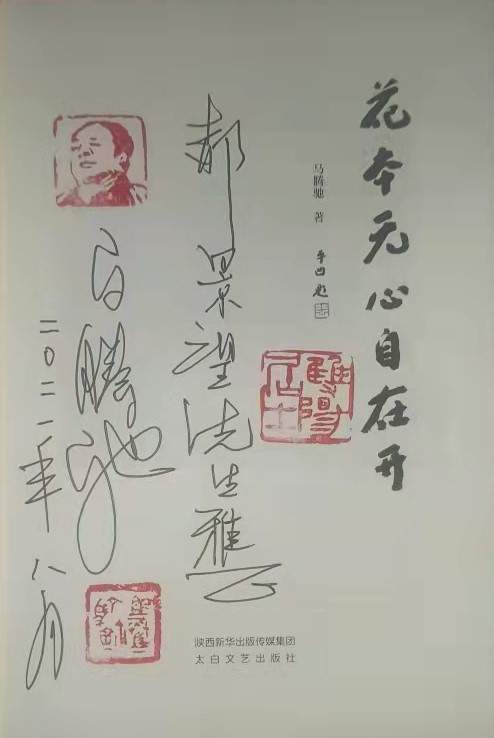 花本无心自在开
马腾驰 著
平凹题
郝景望先生雅正
马腾驰
二〇二一年八月
陕西新华出版传媒集团
太白文艺出版社